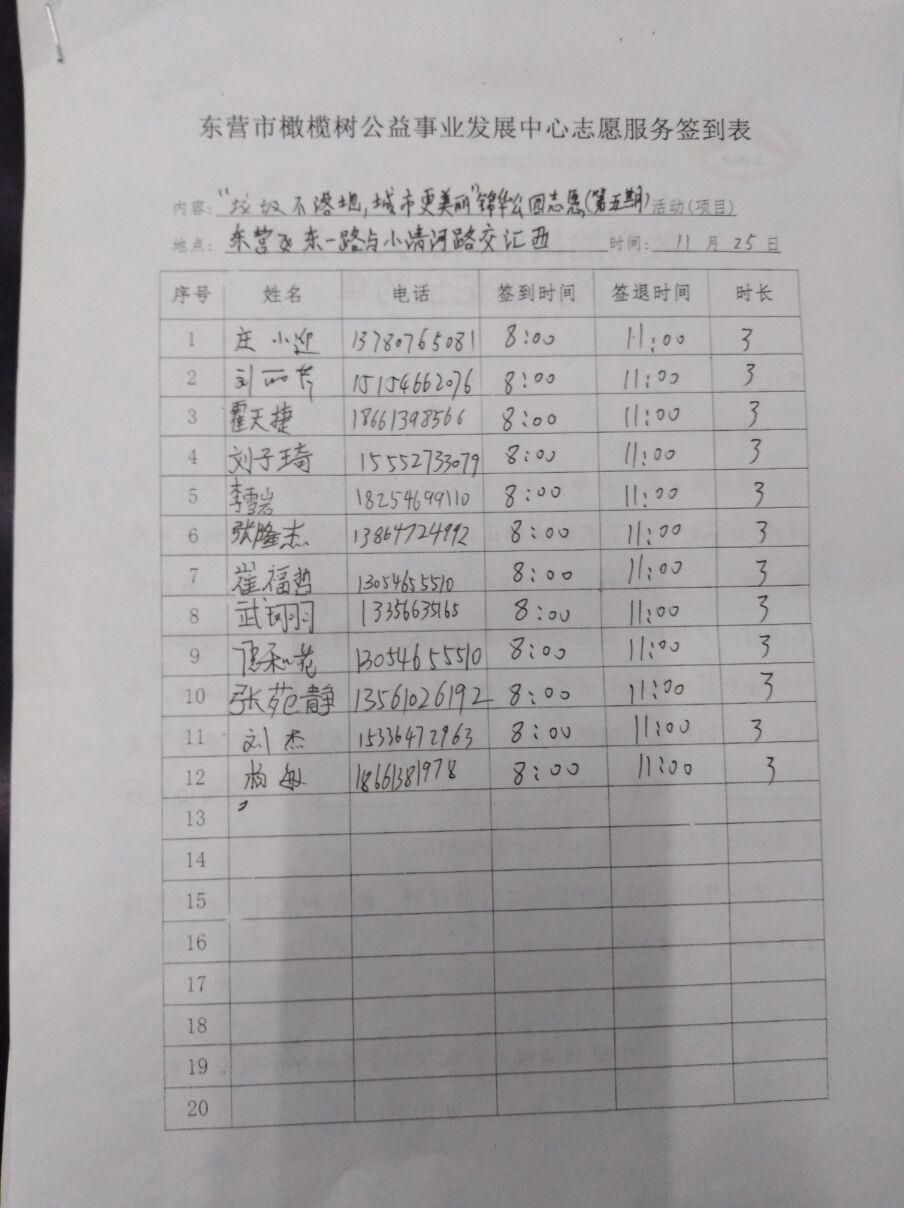 东营市橄榄树公益事业发展中心志愿服务签到表
内容:“垃圾不落地,城市更美丽”锦华公园志愿(第五期)活动(项目)
地点:东营区东一路与小清河路交汇西 时间:11月25日
序号 姓名 电话 签到时间 签退时间 时长
1 庄小迎 13780765081 8:00 11:00 3
2 刘丽芳 15154662076 8:00 11:00 3
3 霍天捷 18661398566 8:00 11:00 3
4 刘子琦 15552733079 8:00 11:00 3
5 李雪岩 18254699110 8:00 11:00 3
6 张隆杰 13864724992 8:00 11:00 3
7 崔福哲 13054655510 8:00 11:00 3
8 武珊羽 13356635165 8:00 11:00 3
9 13054655510 8:00 11:00 3
10 张苑静 13561026192 8:00 11:00 3
11 刘杰 15336472963 8:00 11:00 3
12 杨敏 18661381978 8:00 11:00 3
13
14
15
16
17
18
19
20